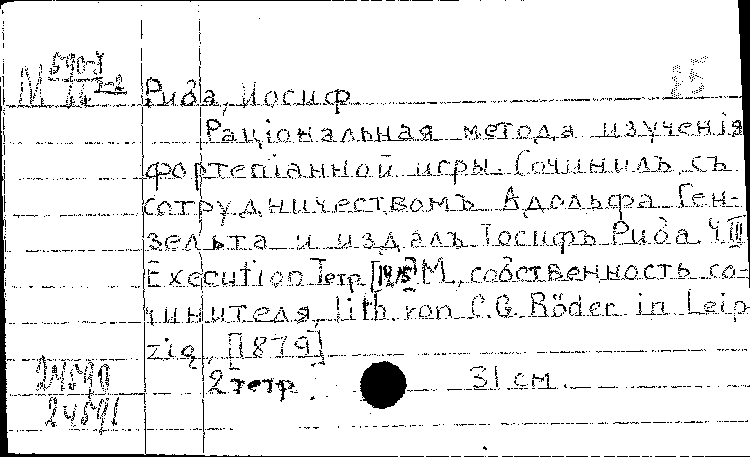 М 590-3
Рида, Иосиф.
Раціональная метода изученія
фортепіанной игры. Сочинилъ съ
сотрудничествомъ Адольфа Ген-
зельта и издалъ Іосифъ Рида. Ч III
Execution Тетр М., собственность со-
чинителя, lith. von C. G. Röder in Leip-
zig, [1879]
24590 2 тетр. 31 см.
24591